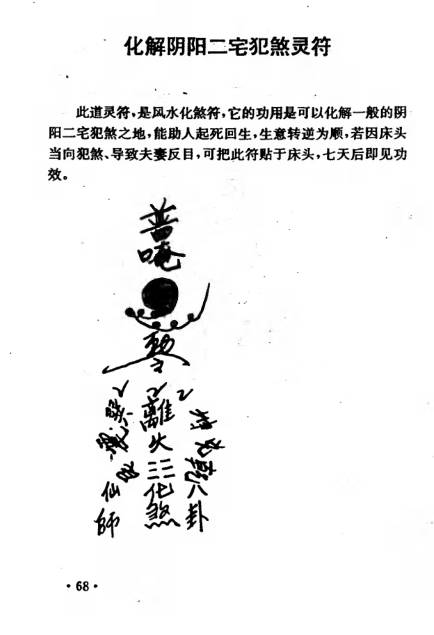 化解阴阳二宅犯煞灵符
此道灵符，是风水化煞符，它的功用是可以化解一般的阴
阳二宅犯煞之地，能助人起死回生，生意转逆为顺，若因床头
当向犯煞、导致夫妻反目，可把此符贴于床头，七天后即见功
效。
普
唵
離火☲化煞
仙師
乾八卦
·68·